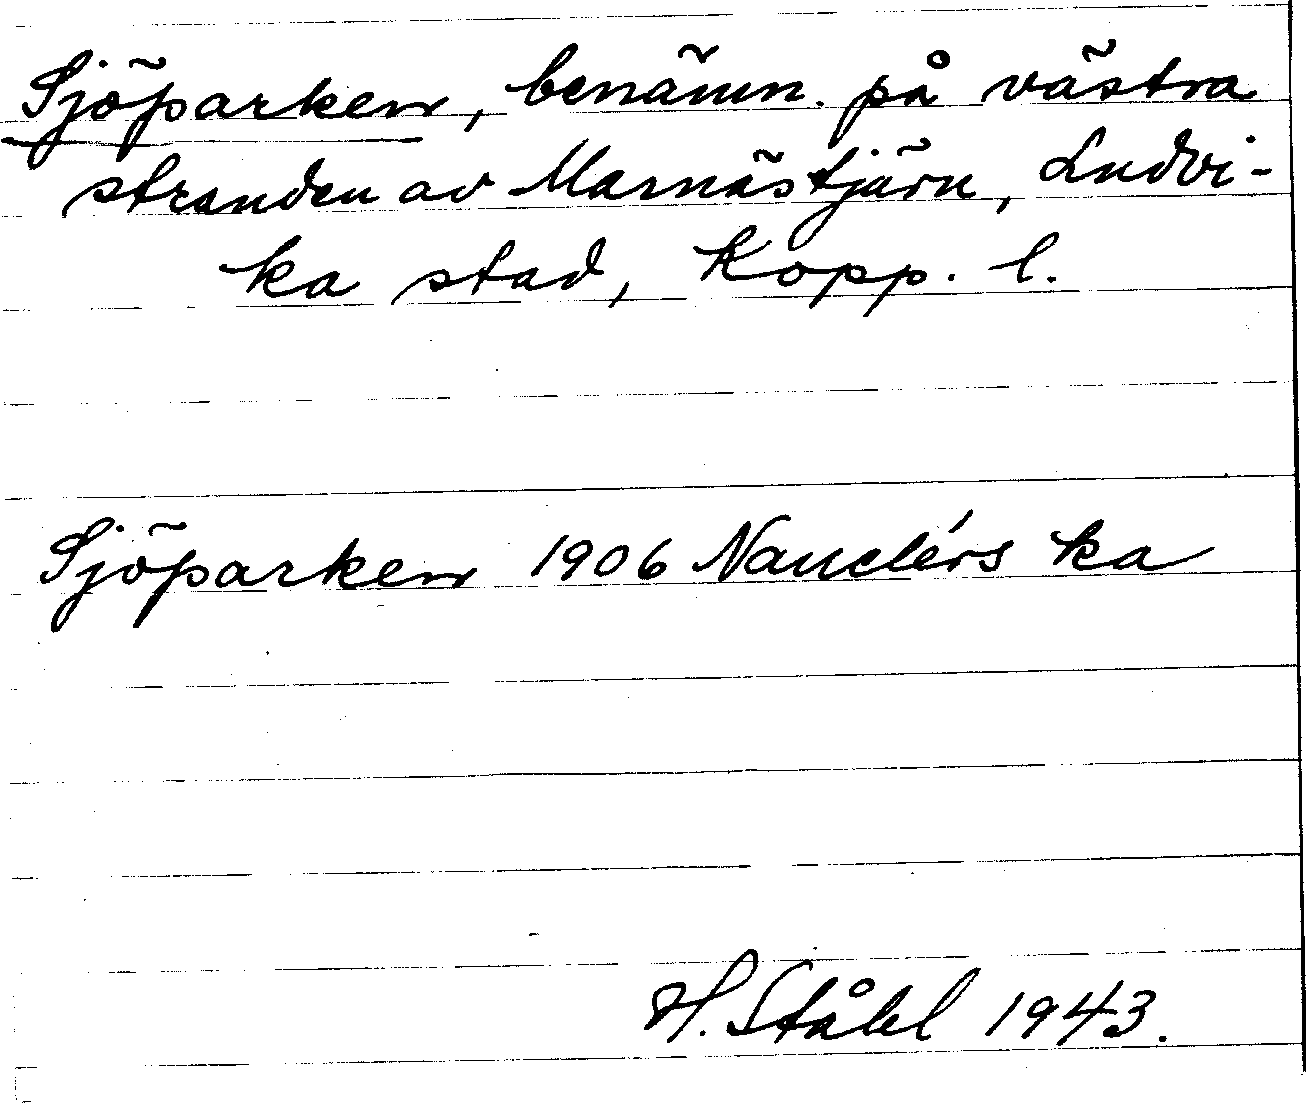 Sjöparken, benämn. på västra
stranden av Marnästjärn, Ludvi-
ka stad, Kopp. l.
Sjöparken 1906 Nauclérs ka
H. Ståhl 1943.